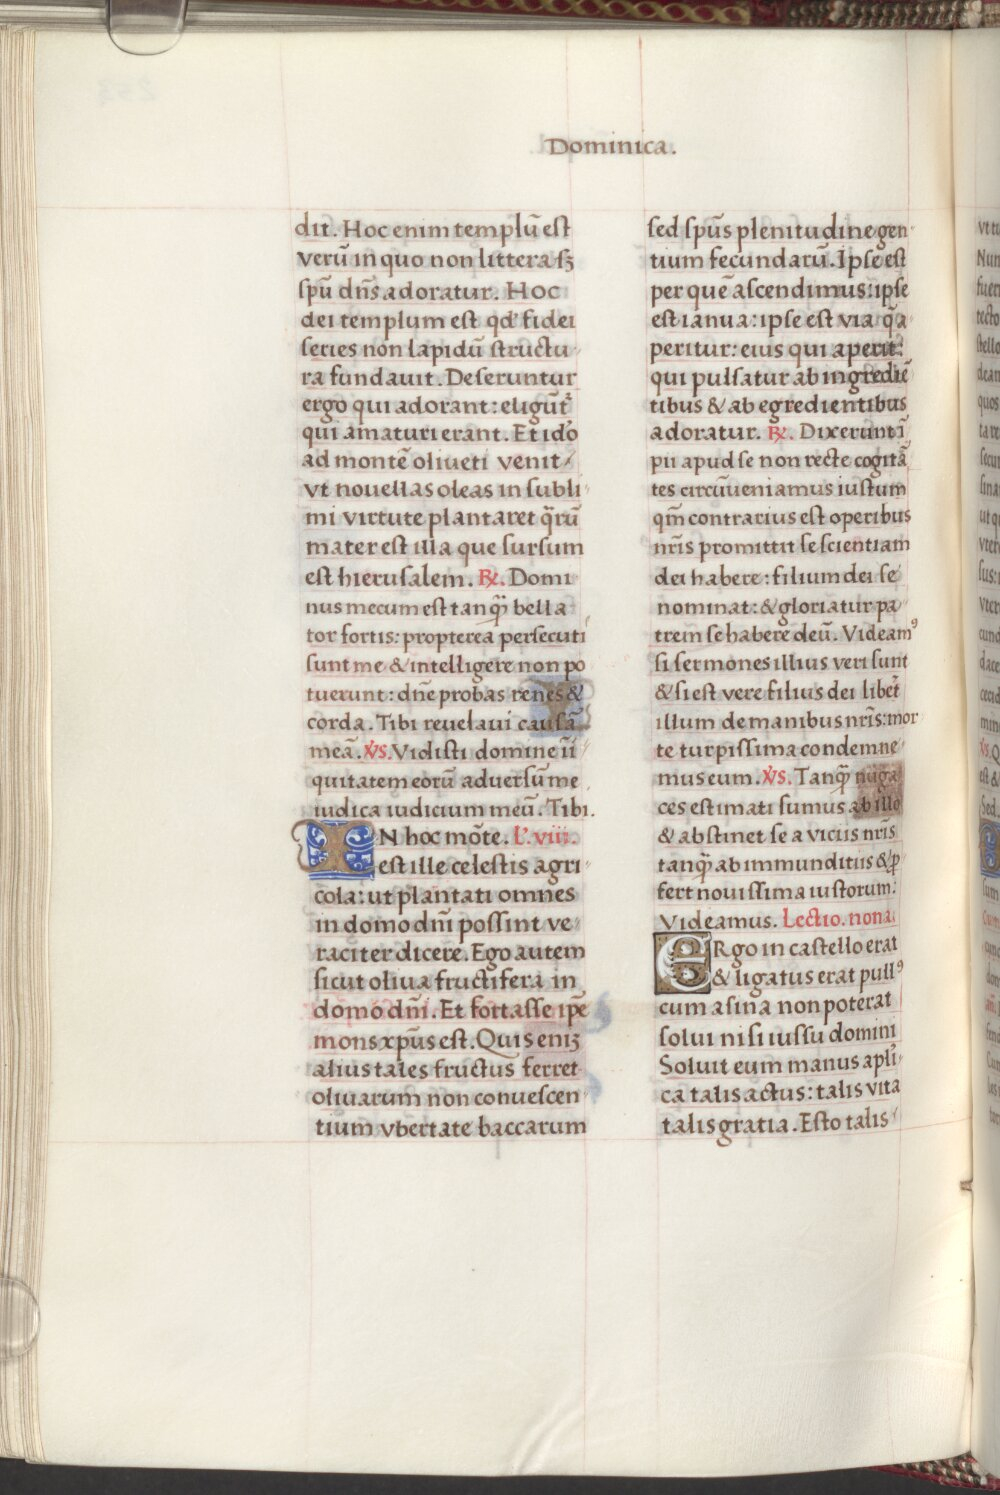 Dominica.
dit. Hoc enim templū est
verū in quo non littera sꝫ
spū dn̄s adoratur. Hoc
dei templum est qđ fidei
series non lapidū structu-
ra fundauit. Deseruntur
ergo qui adorant: eligūt᷑
qui amaturi erant. Et ido᷒
ad montē oliueti venit
vt nouellas oleas in subli-
mi virtute plantaret q̄rū
mater est illa que sursum
est hierusalem. ℞. Domi
nus mecum est tanq̄ȝ bella
tor fortis: propterea persecuti
sunt me & intelligere non po
tuerunt: dn̄e probas renes &
corda. Tibi reuelaui causā
meā. ℣s. Vidisti domine ī i-
quitatem eorū aduersū me
iudica iudicium meū. Tibi.
IN hoc mōte. L'. viii.
est ille celestis agri-
cola: ut plantati omnes
in domo dn̄i possint ve-
raciter dicere. Ego autem
sicut oliua fructifera in
domo dn̄i. Et fortasse ip̄e
mons xp̄us est. Quis eniȝ
alius tales fructus ferret
oliuarum non conuescen-
tium vbertate baccarum
sed spūs plenitudine gen-
tium fecundarū. Ipse est
per quē ascendimus: ipse
est ianua: ipse est via. q̄ a-
peritur: eius qui aperit:
qui pulsatur ab ingrediē
tibus & ab egredientibus
adoratur. ℞. Dixerunt ī
pii apud se non recte cogitā
tes circūueniamus iustum
qm̄ contrarius est operibus
nr̄is promittit se scientiam
dei habere: filium dei se
nominat: & gloriatur pa-
trem se habere deū. Videamꝰ
si sermones illius veri sunt
& si est vere filius dei liber᷑
illum de manibus nr̄is: mor
te turpissima condemne-
mus eum. ℣s. Tanq̄ȝ nuga
ces estimati sumus ab illo
& abstinet se a viciis nr̄is
tanq̄ȝ ab immunditiis & p̄
fert nouissima iustorum:
Videamus. Lectio. nona.
ERgo in castello erat
& ligatus erat pullꝰ
cum asina non poterat
solui nisi iussu domini
Soluit eum manus aplī-
ca talis actus: talis vita
talis gratia. Esto talis